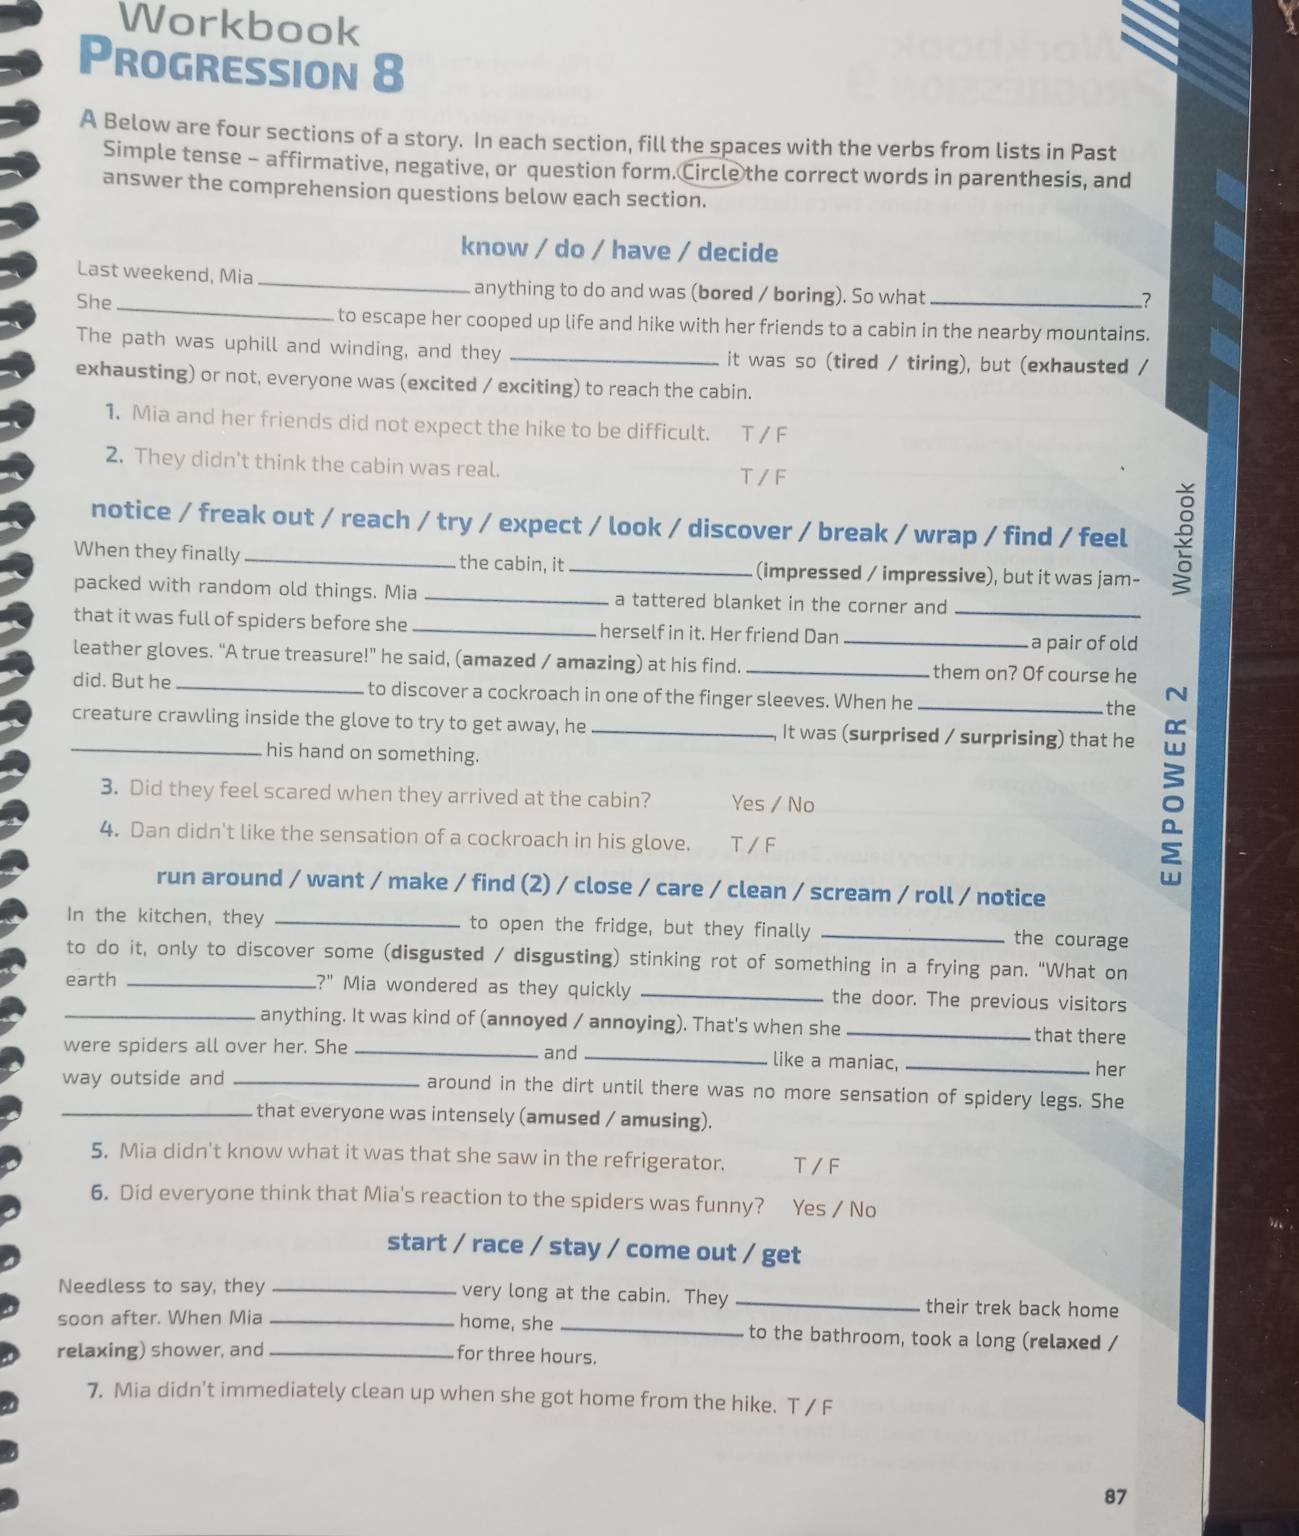 Workbook
PROGRESSION 8
A Below are four sections of a story. In each section, fill the spaces with the verbs from lists in Past
Simple tense – affirmative, negative, or question form. Circle the correct words in parenthesis, and
answer the comprehension questions below each section.
know / do / have / decide
Last weekend, Mia ____ anything to do and was (bored / boring). So what ____?
She ____ to escape her cooped up life and hike with her friends to a cabin in the nearby mountains.
The path was uphill and winding, and they ____ it was so (tired / tiring), but (exhausted /
exhausting) or not, everyone was (excited / exciting) to reach the cabin.
1. Mia and her friends did not expect the hike to be difficult. T / F
2. They didn't think the cabin was real. T / F
notice / freak out / reach / try / expect / look / discover / break / wrap / find / feel
When they finally ____ the cabin, it ____ (impressed / impressive), but it was jam-
packed with random old things. Mia ____ a tattered blanket in the corner and ____
that it was full of spiders before she ____ herself in it. Her friend Dan ____ a pair of old
leather gloves. "A true treasure!" he said, (amazed / amazing) at his find. ____ them on? Of course he
did. But he ____ to discover a cockroach in one of the finger sleeves. When he ____ the
creature crawling inside the glove to try to get away, he ____, It was (surprised / surprising) that he
____ his hand on something.
3. Did they feel scared when they arrived at the cabin? Yes / No
4. Dan didn't like the sensation of a cockroach in his glove. T / F
run around / want / make / find (2) / close / care / clean / scream / roll / notice
In the kitchen, they ____ to open the fridge, but they finally ____ the courage
to do it, only to discover some (disgusted / disgusting) stinking rot of something in a frying pan. "What on
earth ____?" Mia wondered as they quickly ____ the door. The previous visitors
____ anything. It was kind of (annoyed / annoying). That's when she ____ that there
were spiders all over her. She ____ and ____ like a maniac, ____ her
way outside and ____ around in the dirt until there was no more sensation of spidery legs. She
____ that everyone was intensely (amused / amusing).
5. Mia didn't know what it was that she saw in the refrigerator. T / F
6. Did everyone think that Mia's reaction to the spiders was funny? Yes / No
start / race / stay / come out / get
Needless to say, they ____ very long at the cabin. They ____ their trek back home
soon after. When Mia ____ home, she ____ to the bathroom, took a long (relaxed /
relaxing) shower, and ____ for three hours.
7. Mia didn't immediately clean up when she got home from the hike. T / F
87
Workbook
EMPOWER 2